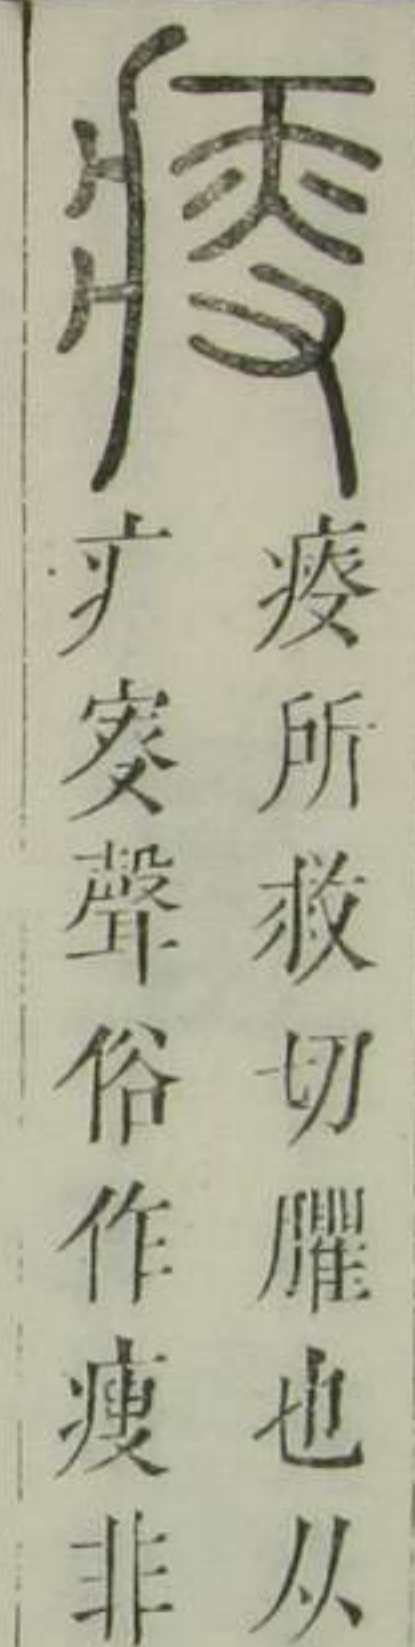 𤸃
𤸃所救切臞也从
疒叜聲俗作瘦非